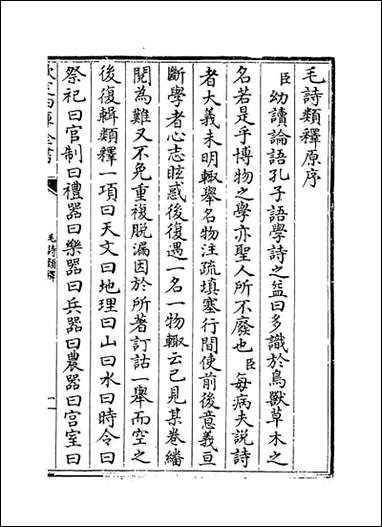 毛詩類釋原序
臣幼讀論語孔子語學詩之益曰多識於鳥獸草木之
名若是乎博物之學亦聖人所不廢也臣每病夫說詩
者大義未明輙舉名物注疏填塞行間使前後意義亘
斷學者心志眩惑後復遇一名一物輙云已見某卷繙
閱為難又不免重複脫漏因於所著訂詁一舉而空之
後復輯類釋一項曰天文曰地理曰山曰水曰時令曰
祭祀曰官制曰禮器曰樂器曰兵器曰農器曰宫室曰
毛詩類釋
一